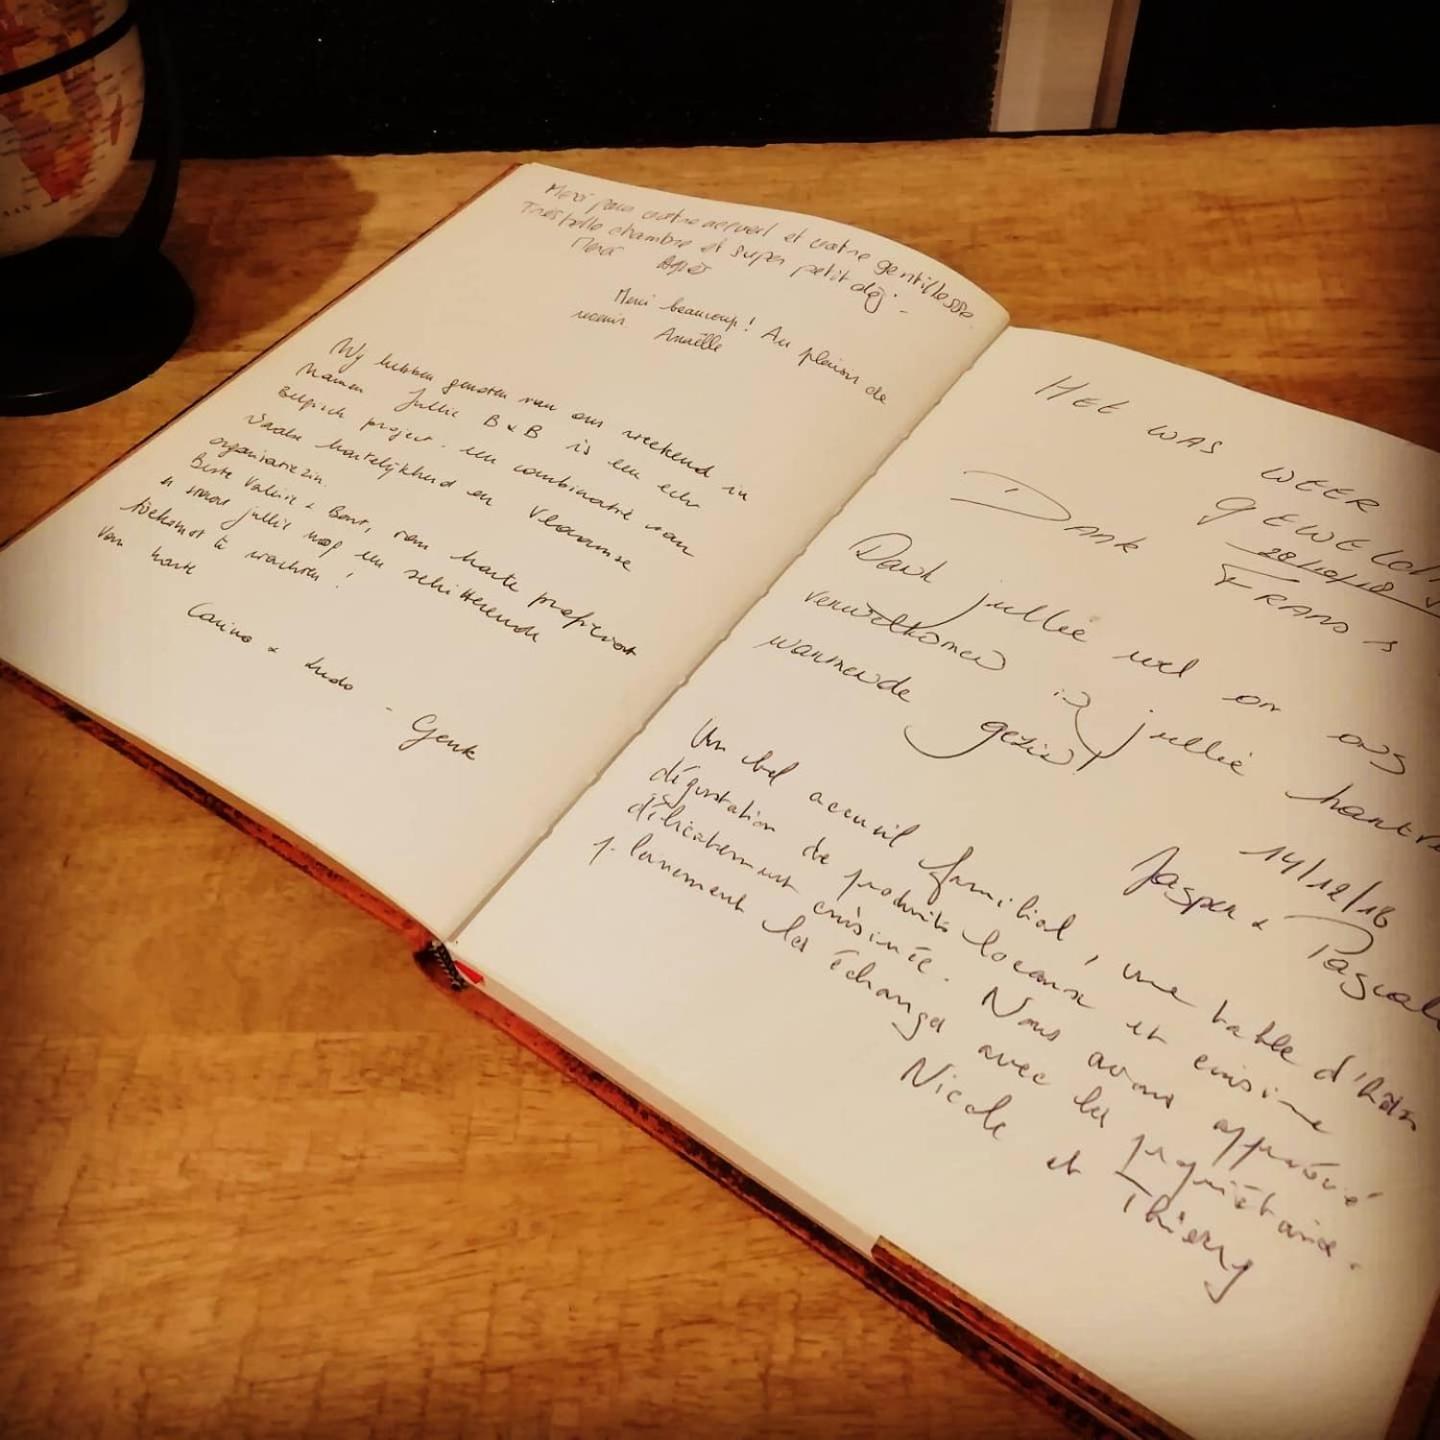 Merci pour votre accueil et votre gentillesse.
Très belle chambre et super petit déj.
Merci Agnès
Merci beaucoup! Au plaisir de
revenir Anaëlle
Wij hebben genoten van ons weekend in
Namen Jullie B & B is een echt
Belgisch project. een combinatie van
Waalse hartelijkheid en Vlaamse
organisatiezin.
Beste Valérie & Bart, van harte proficiat
n jullie nog een schitterende
toekomst te wachten!
Van harte
Carine & Ludo - Genk
HET WAS WEER
GEWELDIG
28/10/18
DANK FRANS
Dank jullie wel om ons
verwelkomen in jullie
gezin!
14/12/18
Jasper & Pascale
Un bel accueil familial, une table d'hôtes
dégustation de produits locaux et cuisine
délicatement cuisinée. Nous avons apprécié
pleinement les échanges avec les propriétaires.
Nicole et Thierry